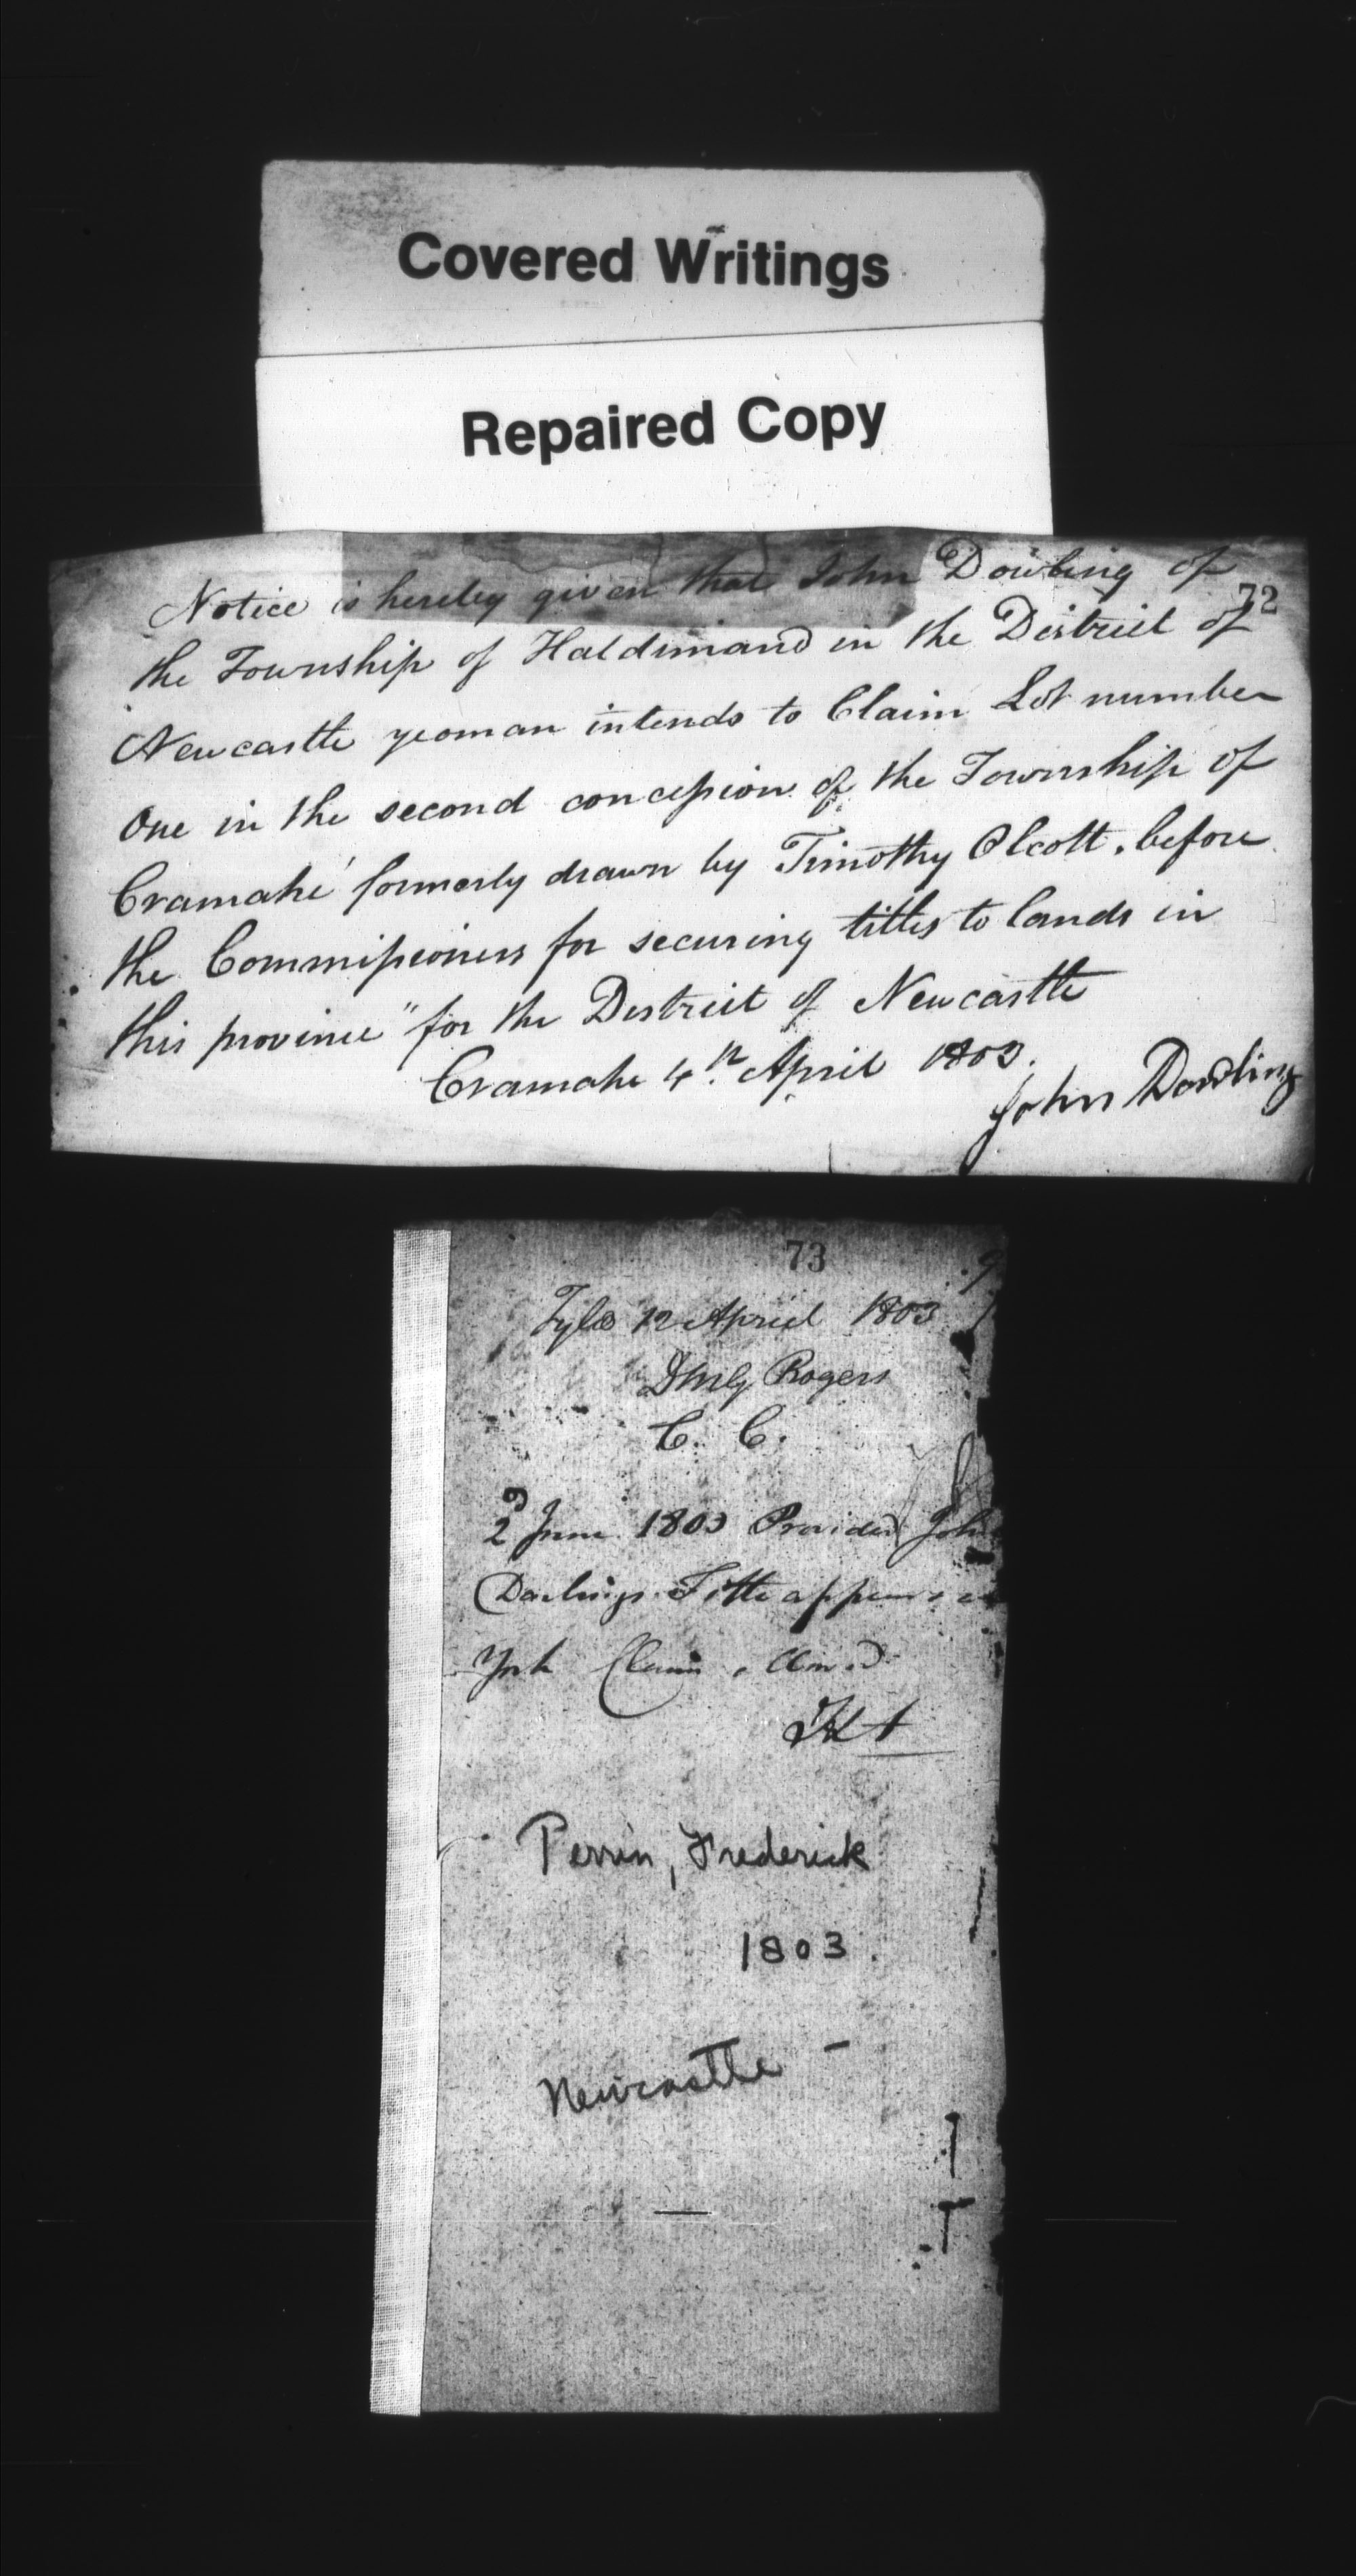 Covered Writings
Repaired Copy
72
Notice is hereby given that John Dowling of
the Township of Haldimand in the District of
Newcastle yeoman intends to Claim Lot number
One in the second concession of the Township of
Cramahé formerly drawn by Timothy Olcott, before
the Commissioners for securing titles to lands in
this province" for the District of Newcastle
Cramahe 4th April 1803.
John Dowling
73
Fyled 12 April 1803
Rogers
C. C.
2d June 1803 Provided John
Title appears
York Claim
Perrin, Frederick
1803.
Newcastle -